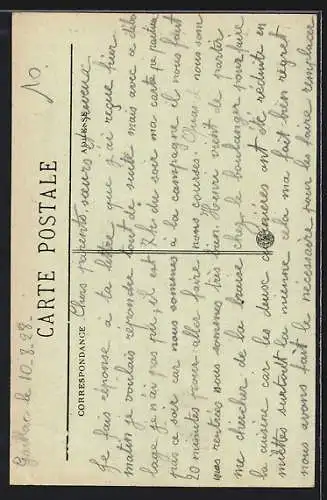 10.
CARTE POSTALE
CORRESPONDANCE
ADRESSE
le 10.8.28
Chers parents, sœurs et neveux
Je fais réponse à la lettre que j'ai reçue hier
matin je voulais répondre tout de suite mais avec ce
je n'ai pas pu, il est 7h du soir ma carte ne partira
pas ce soir car nous sommes à la campagne il nous faut
20 minutes pour aller faire nos courses.
rentrés nous sommes très bien. vient de partir
me chercher de la braise chez le boulanger pour faire
la cuisine car les deux ont été réduite en
miettes surtout la mienne cela m'a fait bien regret
nous avons fait le nécessaire pour les faire remplacer